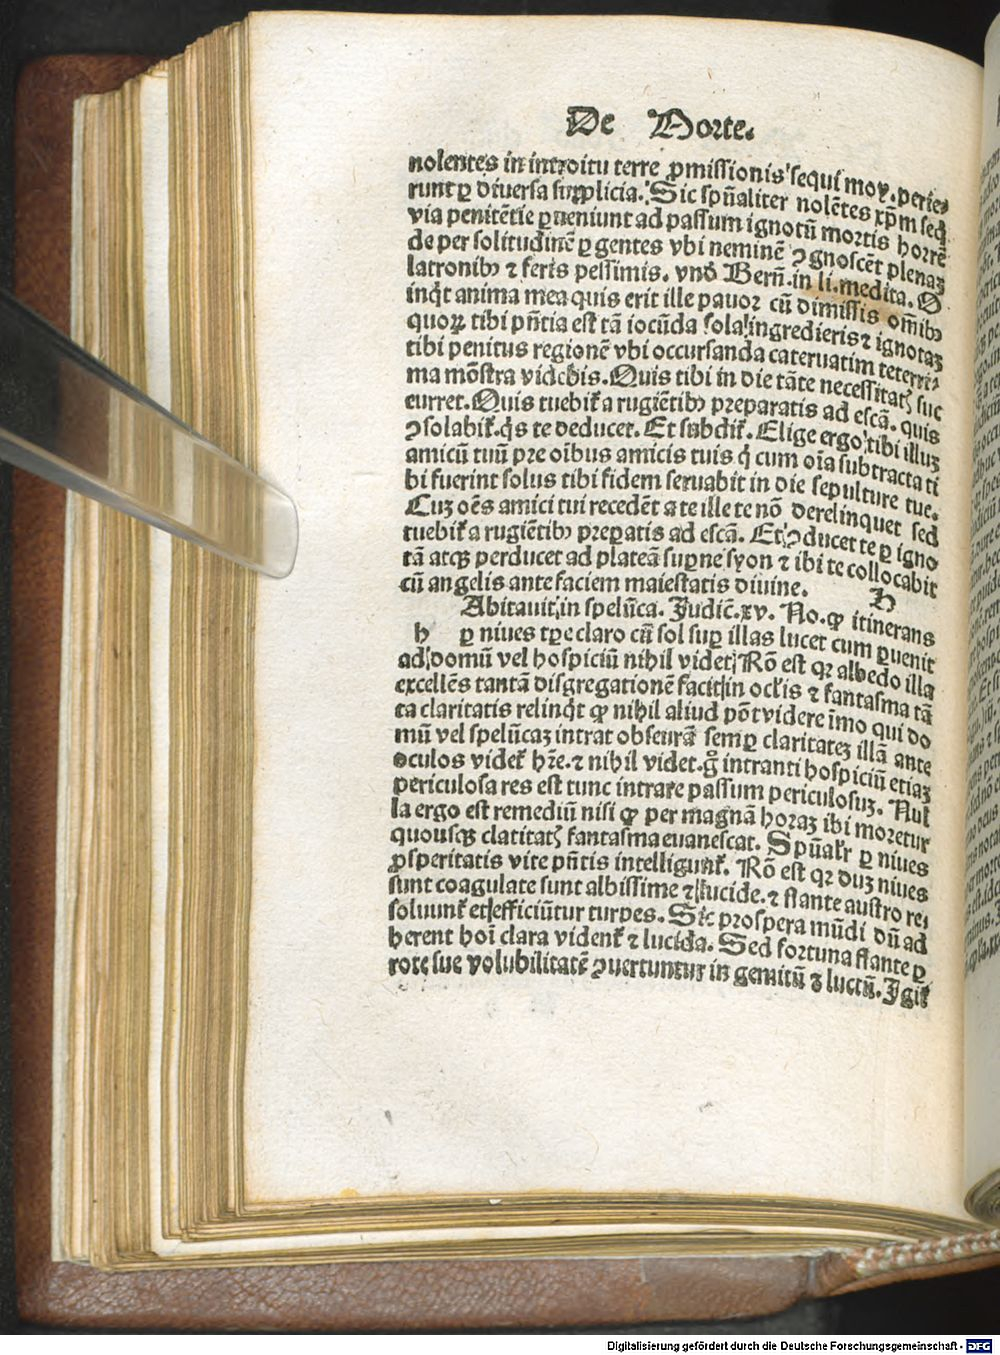 De Morte.
nolentes in introitu terre ꝓmissionis sequi moy. perie-
runt ꝑ diuersa supplicia. Sic spūaliter nolētes xp̄m seq̄
via penitētie ꝑueniunt ad passum ignotū mortis horrē
de per solitudinē ꝑ gentes vbi neminē ꝯgnoscēt plenaꝫ
latronibꝰ ⁊ feris pessimis. vnđ Berñ. in li. medita. O
inq̄t anima mea quis erit ille pauor cū dimissis om̄ibꝰ
quoꝝ tibi pn̄tia est tā iocūda sola ingredieris ⁊ ignotaꝫ
tibi penitus regionē vbi occursanda cateruatim teterri-
ma mōstra videbis. Quis tibi in die tāte necessitatꝭ suc
curret. Quis tuebiť a rugiētibꝰ preparatis ad escā. quis
ꝯsolabiť. q̄s te deducet. Et subdiť. Elige ergo tibi illuꝫ
amicū tuū pre oībus amicis tuis q̄ cum oīa subtracta ti
bi fuerint solus tibi fidem seruabit in die sepulture tue.
Cuꝫ oēs amici tui recedēt a te ille te nō derelinquet sed
tuebiť a rugiētibꝰ preꝑatis ad escā. Et ꝯducet te ꝑ igno
tā atqꝫ perducet ad plateā suꝑne syon ⁊ ibi te collocabit
cū angelis ante faciem maiestatis diuine. H
Abitauit in spelūca. Judič. xv. No. ꝙ itinerans
h ꝑ niues tꝑe claro cū sol suꝑ illas lucet cum ꝑuenit
ad domū vel hospiciū nihil videt. Rō est qꝛ albedo illa
excellēs tantā disgregationē facit in oclis ⁊ fantasma tā
ta claritatis relinq̄t ꝙ nihil aliud pōt videre īmo qui do
mū vel spelūcaꝫ intrat obscurā semꝑ claritateꝫ illā ante
oculos videť hr̄e. ⁊ nihil videt. ḡ intranti hospiciū etiaꝫ
periculosa res est tunc intrare passum periculosuꝫ. Nul
la ergo est remediū nisi ꝙ per magnā horaꝫ ibi moretur
quousqꝫ clatitatꝭ fantasma euanescat. Spūaľr ꝑ niues
ꝓsperitatis vite pn̄tis intelligunť. Rō est qꝛ duꝫ niues
sunt coagulate sunt albissime ⁊ lucide. ⁊ flante austro re-
soluunť et efficiūtur turpes. Sic prospera mūdi dū ad
herent hoī clara videnť ⁊ lucida. Sed fortuna flante ꝑ
rote sue volubilitatē ꝯuertuntur in gemitū ⁊ luctū. Igiť
Digitalisierung gefördert durch die Deutsche Forschungsgemeinschaft - DFG